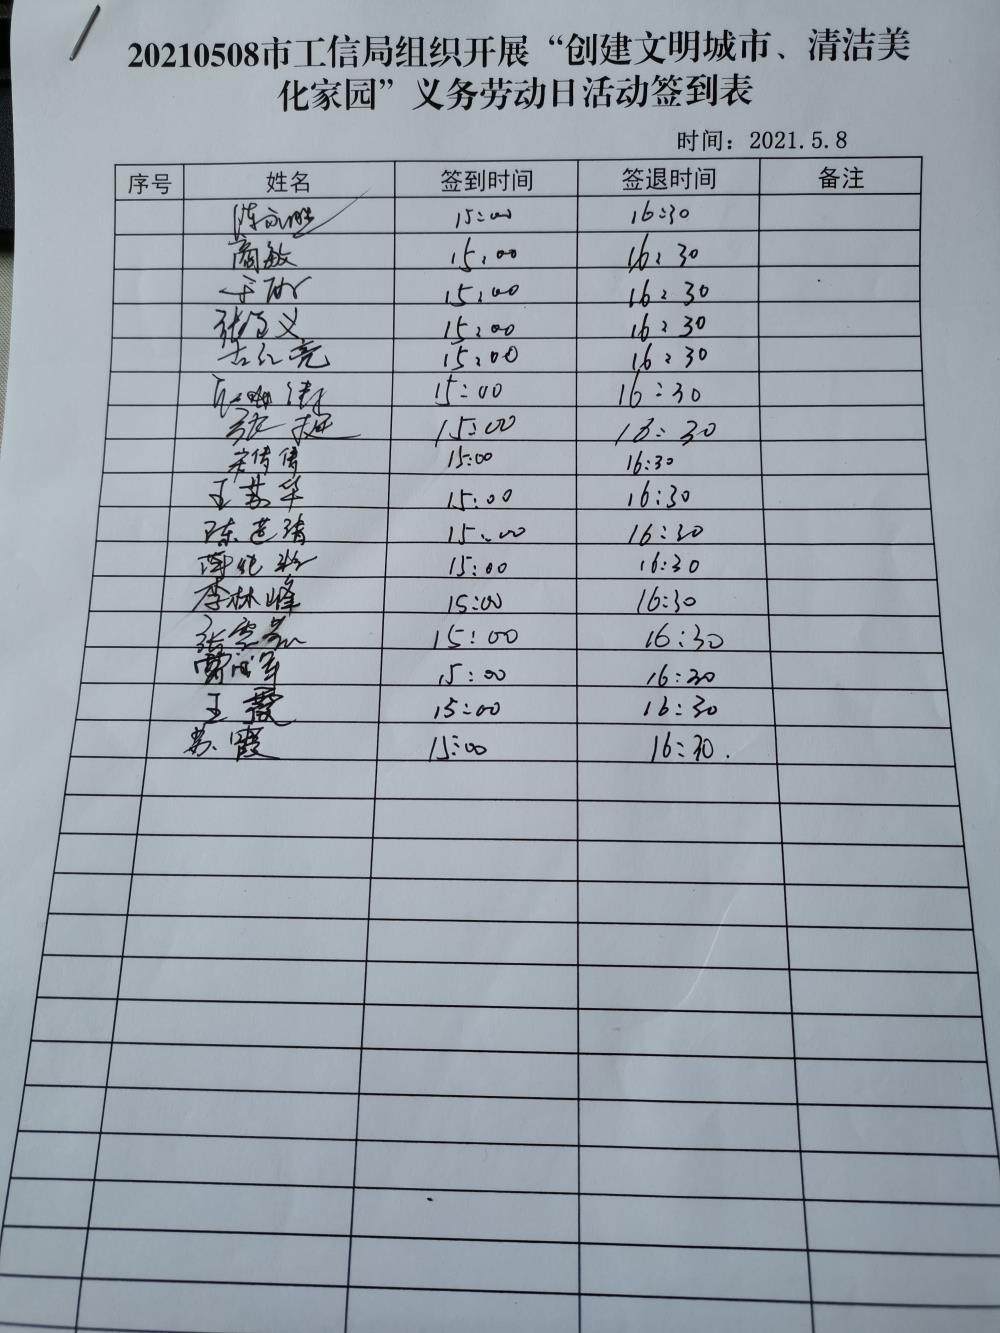 20210508市工信局组织开展“创建文明城市、清洁美
化家园”义务劳动日活动签到表
时间：2021.5.8
序号 姓名 签到时间 签退时间 备注
15:00 16:30
商敏 15:00 16:30
15:00 16:30
义 15:00 16:30
古红亮 15:00 16:30
15:00 16:30
张捷 15:00 18:30
宋倩倩 15:00 16:30
王苏华 15:00 16:30
陈 15:00 16:30
15:00 16:30
李林峰 15:00 16:30
张 15:00 16:30
军 15:00 16:30
王霞 15:00 16:30
苏霞 15:00 16:30.